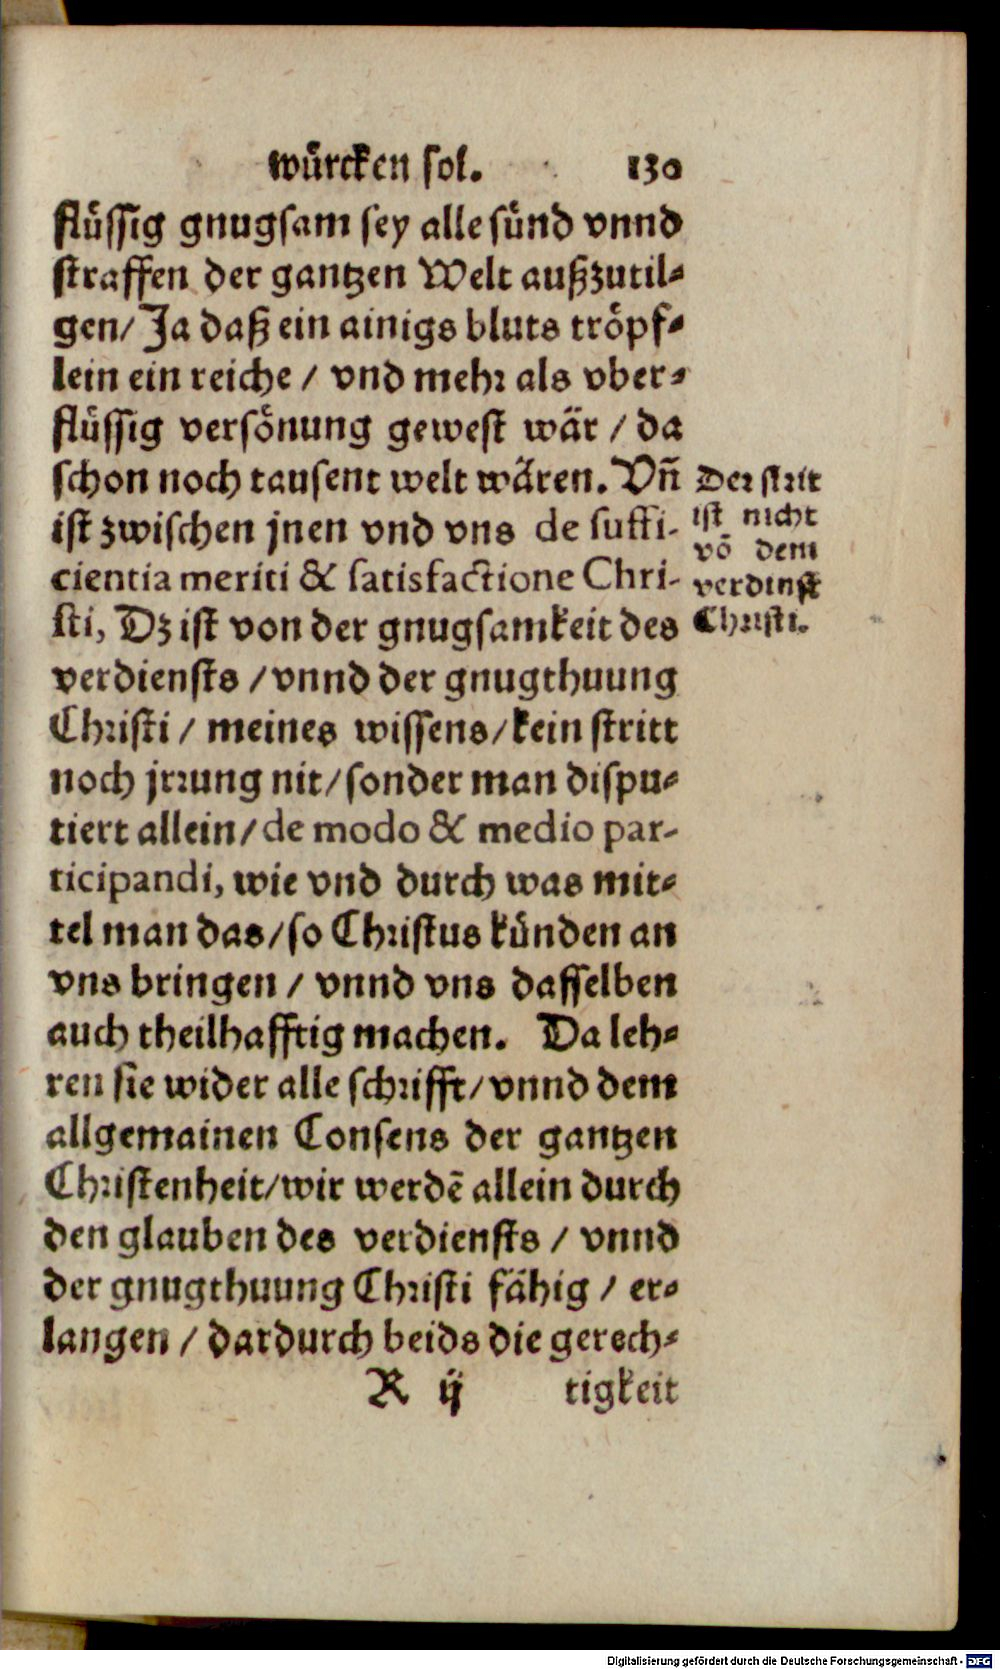 würcken sol. 130
flüssig gnugsam sey alle sünd vnnd
straffen der gantzen Welt außzutil-
gen/ Ja daß ein ainigs bluts tröpf-
lein ein reiche / vnd mehr als vber-
flüssig versönung gewest wär / da
schon noch tausent welt wären. Vñ
ist zwischen jnen vnd vns de suffi-
cientia meriti & satisfactione Chri-
sti, Dz ist von der gnugsamkeit des
verdiensts / vnnd der gnugthuung
Christi / meines wissens/ kein stritt
noch jrrung nit/ sonder man dispu-
tiert allein/ de modo & medio par-
ticipandi, wie vnd durch was mit-
tel man das/ so Christus künden an
vns bringen / vnnd vns dasselben
auch theilhafftig machen. Da leh-
ren sie wider alle schrifft/ vnnd dem
allgemainen Consens der gantzen
Christenheit/ wir werdē allein durch
den glauben des verdiensts / vnnd
der gnugthuung Christi fähig / er-
langen / dardurch beids die gerech-
R ij tigkeit
Der strit
ist nicht
vō dem
verdinst
Christi.
Digitalisierung gefördert durch die Deutsche Forschungsgemeinschaft - DFG